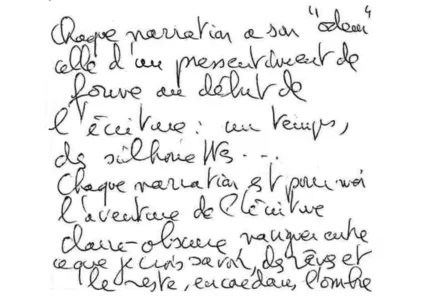 Chaque narration a son "odeur"
celle d'un pressentiment de
fauve au début de
l'écriture : un temps,
des silhouettes...
Chaque narration est pour moi
l'aventure de l'écriture
claire-obscure naviguer entre
ce que je crois savoir, des rêves et
le reste, encore dans l'ombre